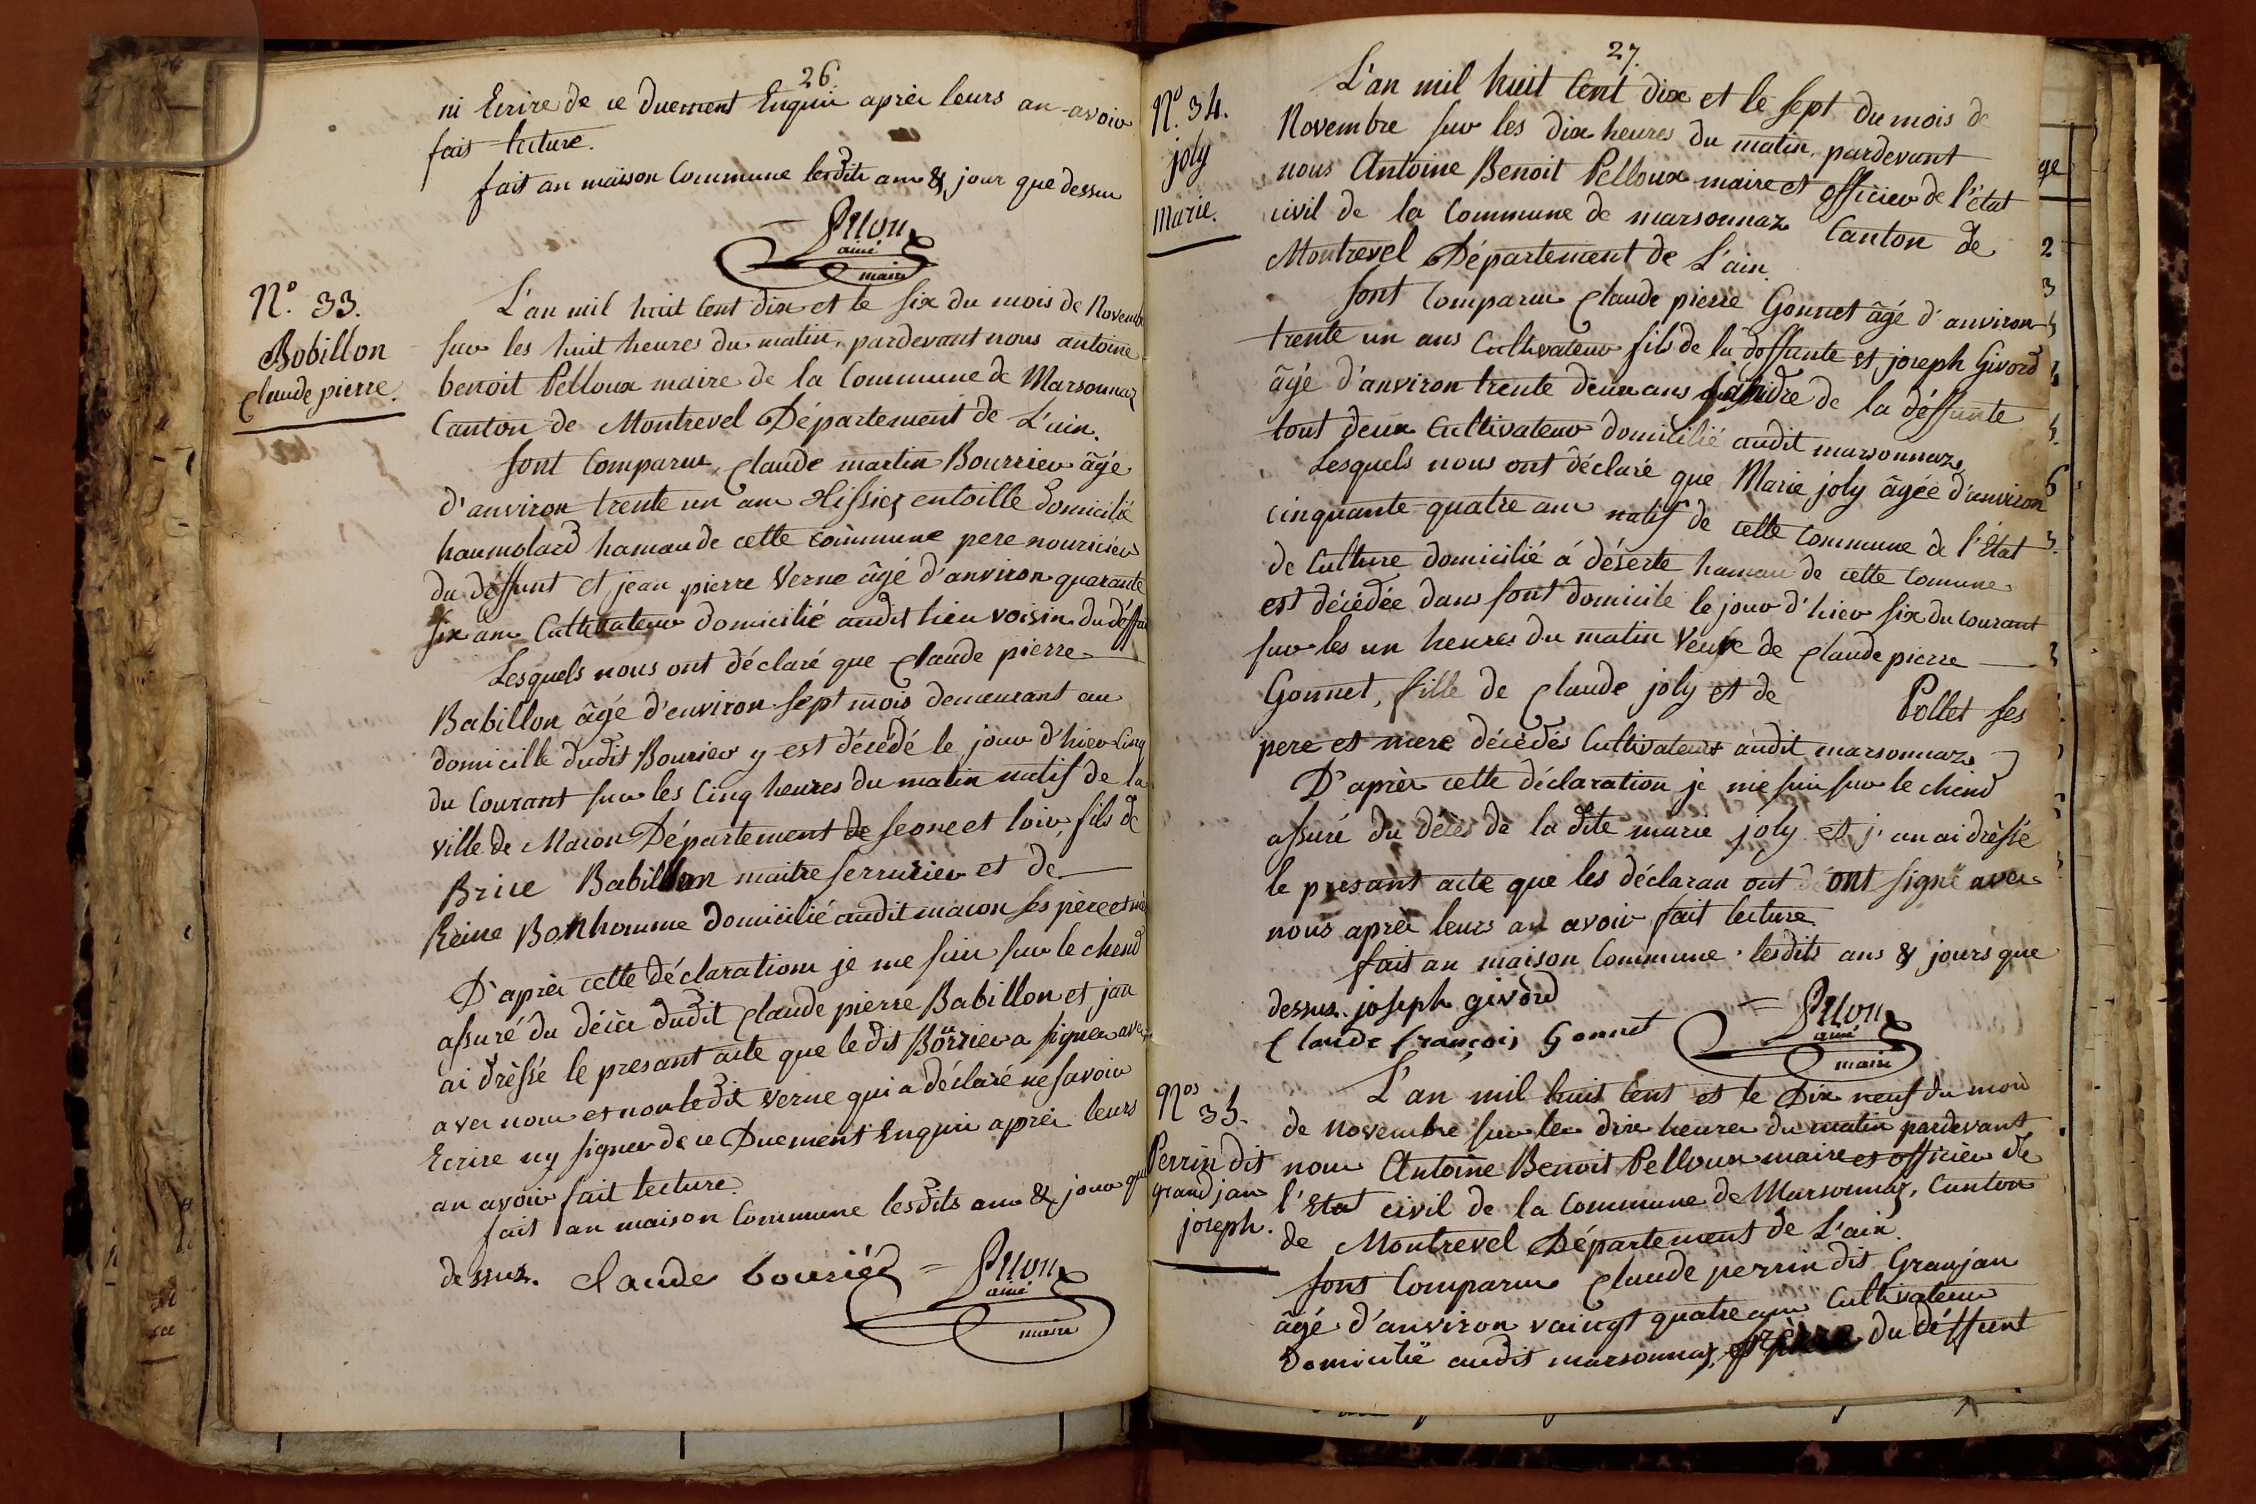 26
ni Ecrire de ce duement Enquiri aprèr leurs an avoir
fais lecture.
fait an maison Commune lesdits ans & jour que dessus
Pillon
ainé
maire
N.° 33.
Bobillon
Claude pierre.
L'an mil huit Cent dix et le six du mois de Novemb
sur les huit heures du matin, pardevant nous antoine
benoit Pelloux maire de la Commune de Marsonnaz
Canton de Montrevel Département de L'ain.
sont Comparu Claude martin Bourrier âgé
d'anviron trente un ans Tissier entoille domicilié
haumolard hamau de cette Commune pere nouricier
du déffunt et jean pierre Verne âgé d'anviron quarante
six ans Cultivateur domicilié audit lieu voisin du déffun
Lesquels nous ont déclaré que Claude pierre
Babillon âgé d'environ sept mois demeurant au
domicille dudit Bourier y est décédé le jour d'hier Cinq
du Courant sur les Cinq heures du matin natif de la
ville de Macon Département de seone et loir, fils de
Brice Babillon maitre serrurier et de
Reine Bonhomme domicilié audit macon ses père et mè
D'aprèr cette déclarationn je me suis sur le chend
assuré du décèr dudit Claude pierre Babillon et jan
ai drèssé le presant acte que ledit Börrier a signer avec
avec nous et non ledit verne qui a déclaré ne savoir
Ecrire ny signer de ce Duement Enquiri aprèr leurs
an avoir fait lecture.
fait an maison Commune lesdits ans & jour que
dessus. claude bouriéd
Pillon
ainé
maire
27.
N.° 34.
joly
Marie.
L'an mil huit Cent dix et le sept du mois de
Novembre sur les dix heures du matin, pardevant
nous Antoine Benoit Pelloux maire et officier de l'état
civil de la Commune de marsonnaz Canton de
Montrevel Département de L'ain.
sont Comparu Claude pierre Gonnet âgé d'anviron
trente un ans Cultivateur fils de la déffunte et joseph Givord
âgé d'anviron trente deux ans gandre de la déffunte
tout deux Cultivateur domicilié audit marsonnaz
Lesquels nous ont déclaré que Marie joly âgée d'anviron
cinquante quatre ans natif de cette Commune de l'Etat
de Culture domicilié á déserte hamau de cette Comune
est décédée dans sont domicile le jour d'hier six du courant
sur les un heures du matin Veuve de Claude pierre
Gonnet, fille de Claude joly et de Pollet ses
pere et mere décédés Cultivateurs audit marsonnaz
D'aprèr cette déclaration je me suis sur le chend
assuré du décès de la dite marie joly et j'an ai drèssé
le presant acte que les déclaran ont ont signé avec
nous aprèr leurs an avoir fait lecture
fait an maison Commune lesdits ans & jours que
dessus. joseph givord
Claude françois Gonnet
Pillon
ainé
maire
Nos 35.
Perrin dit
grand jan
joseph.
L'an mil huit Cent et le Dix neuf du mois
de Novembre sur les dix heures du matin pardevant
nous Antoine Benoit Pelloux maire et officier de
l'Etat civil de la Commune de Marsonnaz, Canton
de Montrevel Département de L'ain.
sont Comparu Claude perrin dit Granjan
âgé d'anviron vaingt quatre ans Cultivateur
Domicilié audit marsonnaz, frère du déffunt
ge
2
3